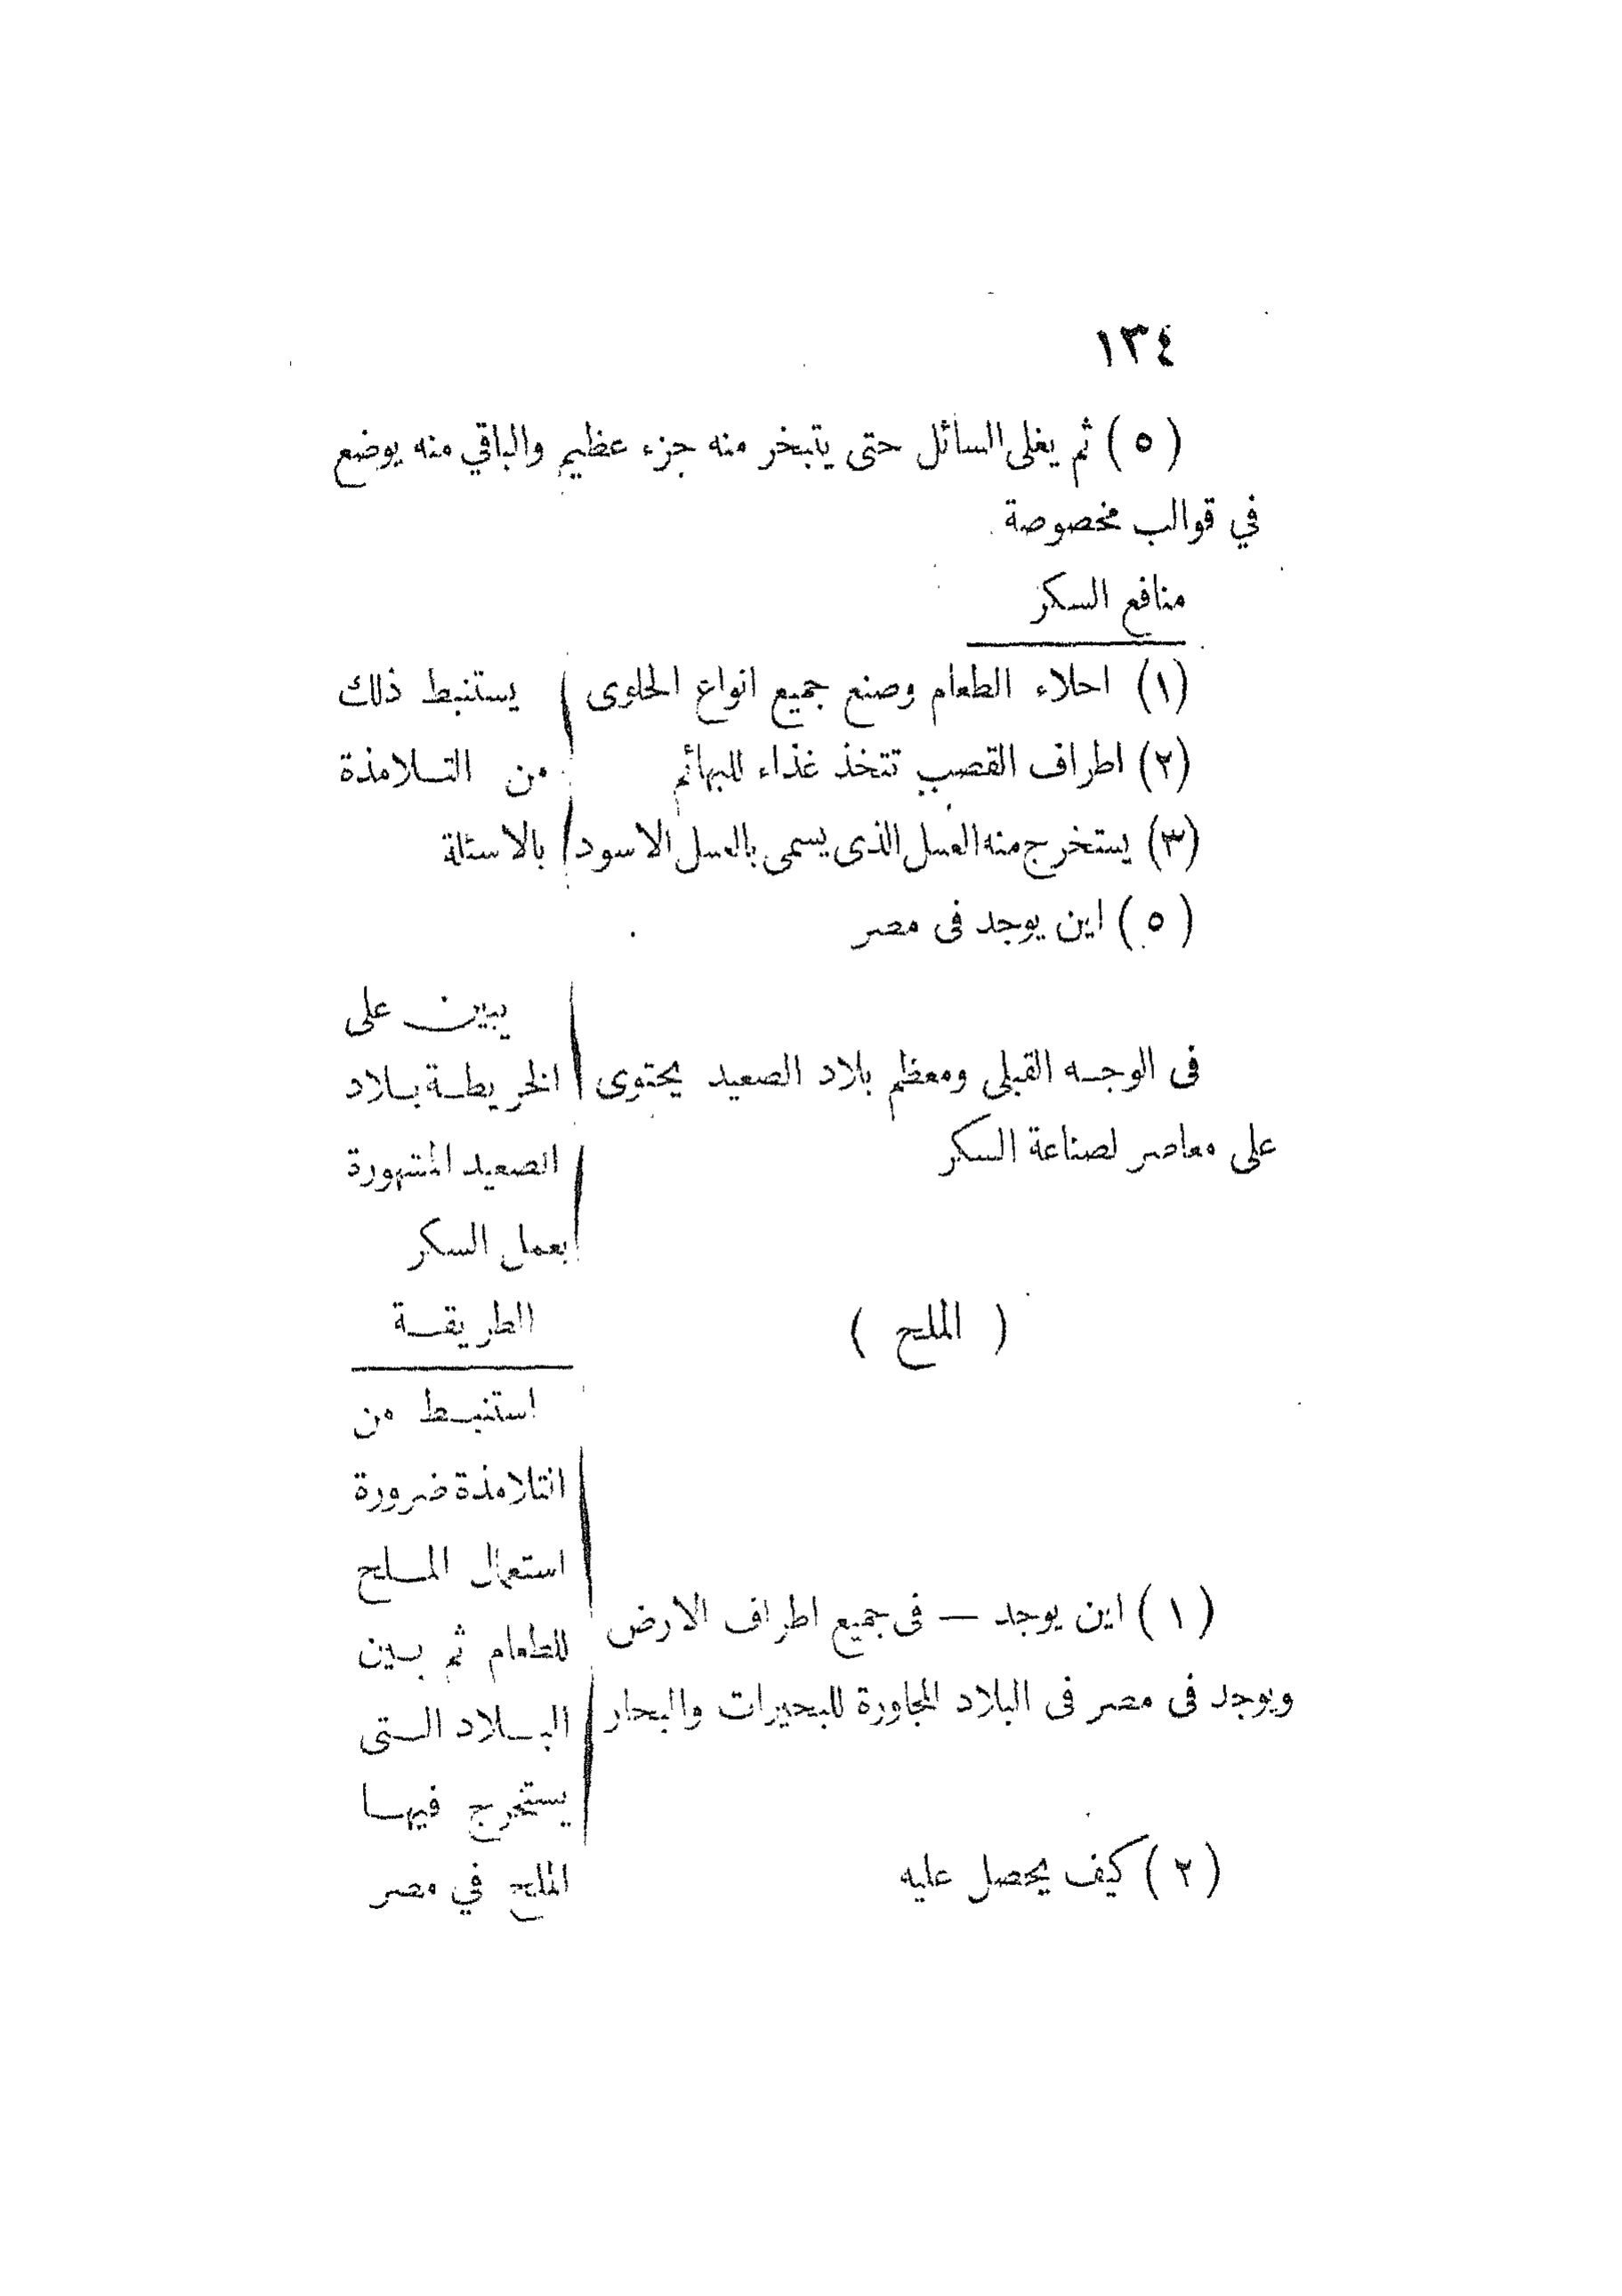 ١٣٤
( ٥ ) ثم يغلى السائل حتى يتبخر منه جزء عظيم والباقي منه يوضع
في قوالب مخصوصة
منافع السكر
(١) احلاء الطعام وصنع جميع انواع الحلوى
(٢) اطراف القصب تتخذ غذاء للبهائم
(٣) يستخرج منه العسل الذى يسمى بالعسل الاسود
يستنبط ذلك
من التلامذة
بالاسئلة
( ٥ ) اين يوجد فى مصر
فى الوجه القبلى ومعظم بلاد الصعيد يحتوى
على معاصر لصناعة السكر
يبين على
الخريطة بلاد
الصعيد المشهورة
بعمل السكر
( الملح )
( ١ ) اين يوجد — فى جميع اطراف الارض
ويوجد فى مصر فى البلاد المجاورة للبحيرات والبحار
( ٢ ) كيف يحصل عليه
الطريقة
استنبط من
التلامذة ضرورة
استعمال الملح
للطعام ثم بين
البلاد التى
يستخرج فيها
الملح في مصر